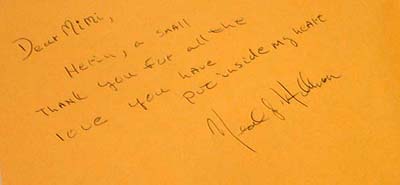 Dear Mimi,
Herin, a small
Thank you for all the
love you have
put inside my heart